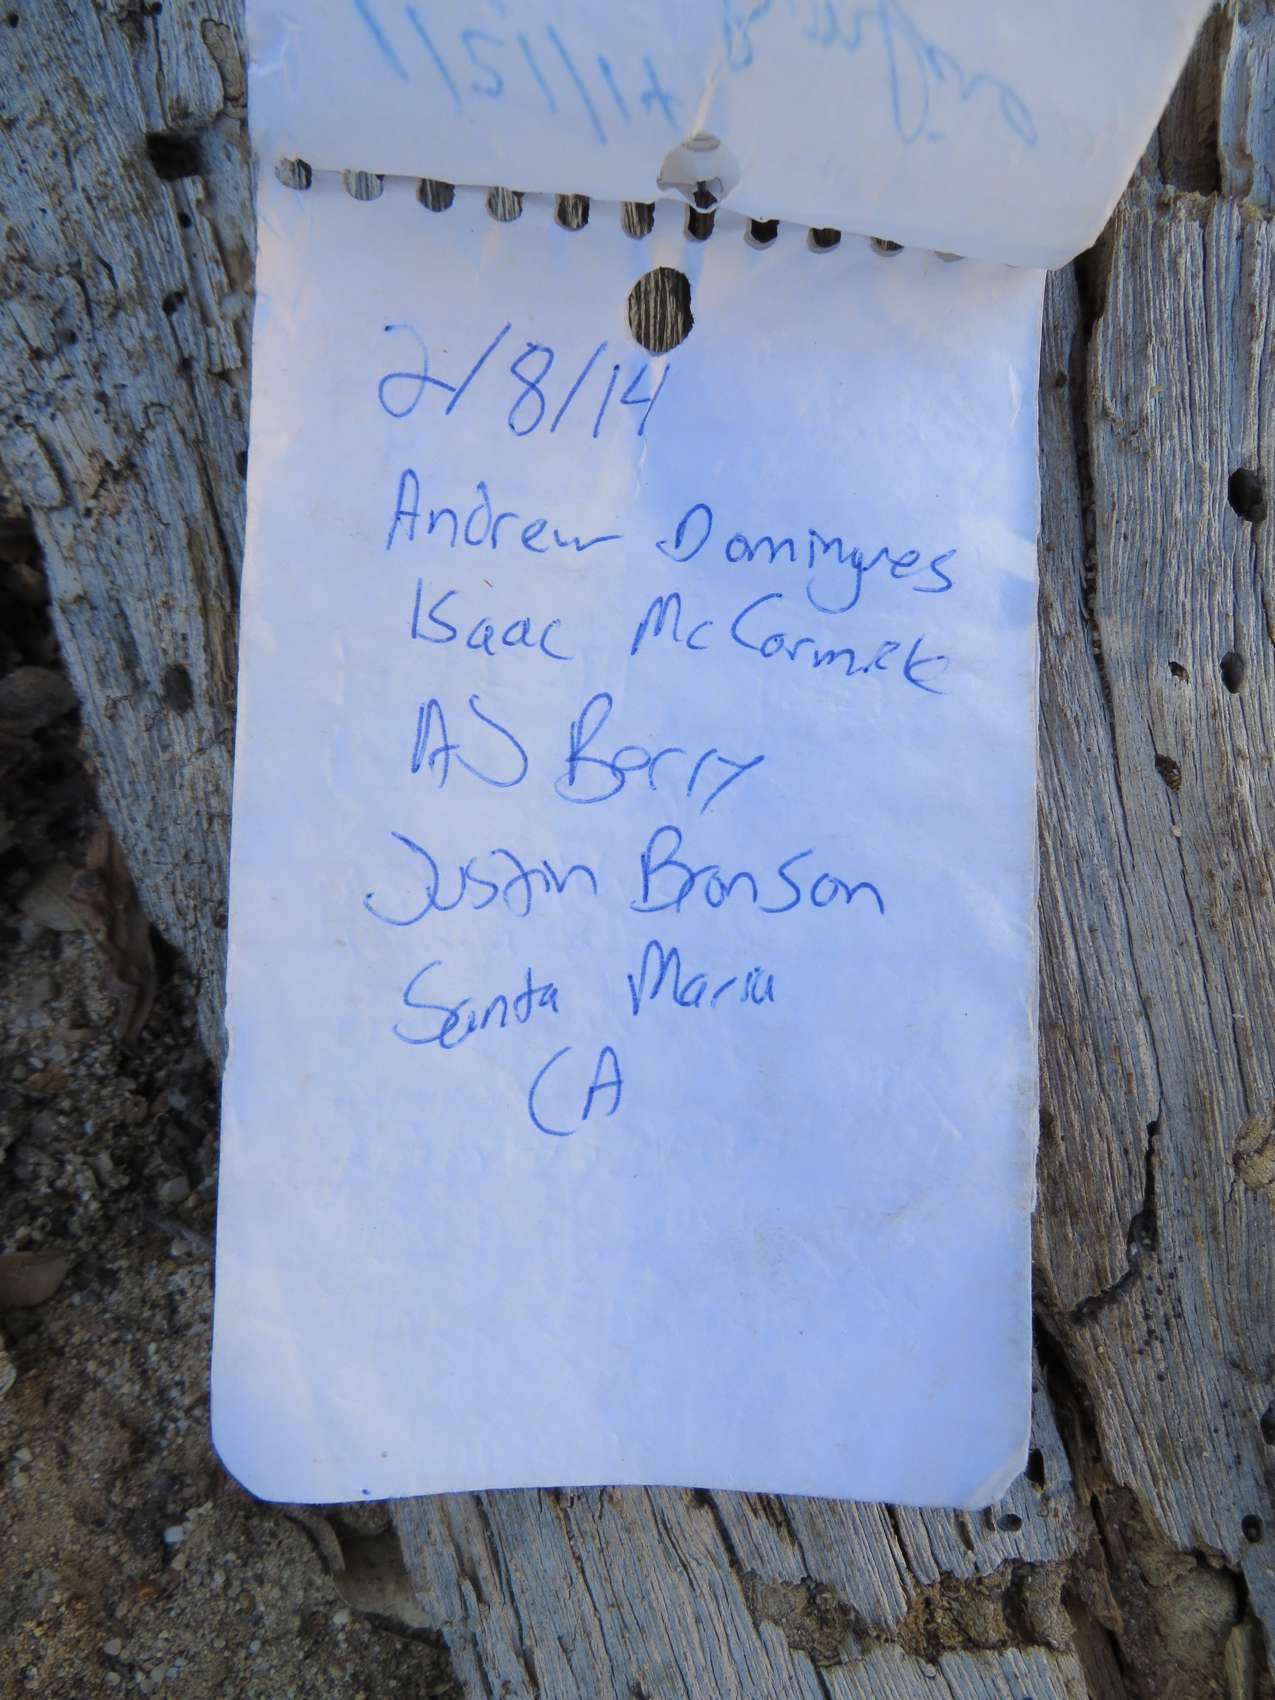 2/8/14
Andrew Domingues
Isaac McCormick
AJ Berry
Justin Bronson
Santa Maria
CA